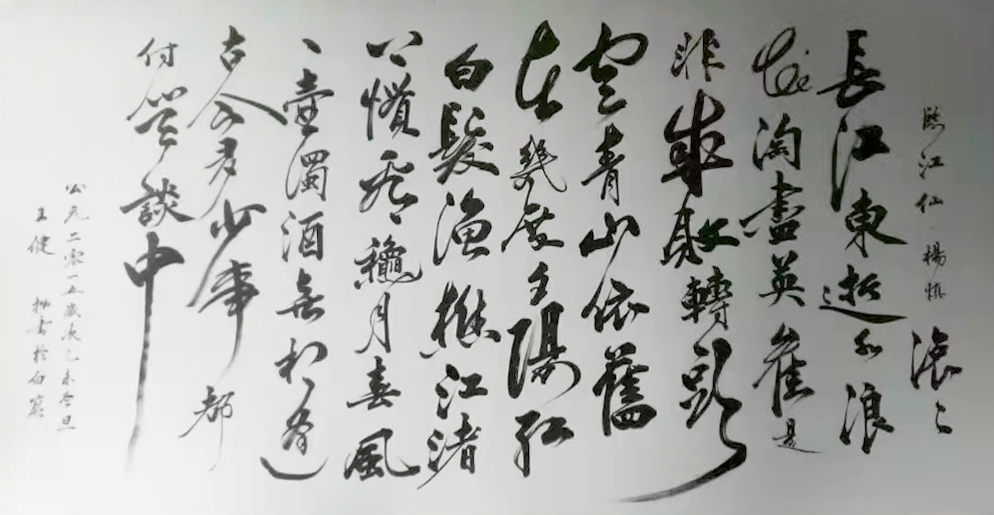 臨江仙·楊慎 滾〻
長江東逝水浪
花淘盡英雄是
非成敗轉頭
空青山依舊
在幾度夕陽紅
白髮漁樵江渚
上慣看穐月春風
一壺濁酒喜相逢
古今多少事都
付笑談中
公元二零一五歲次乙未旦
王健 書於白